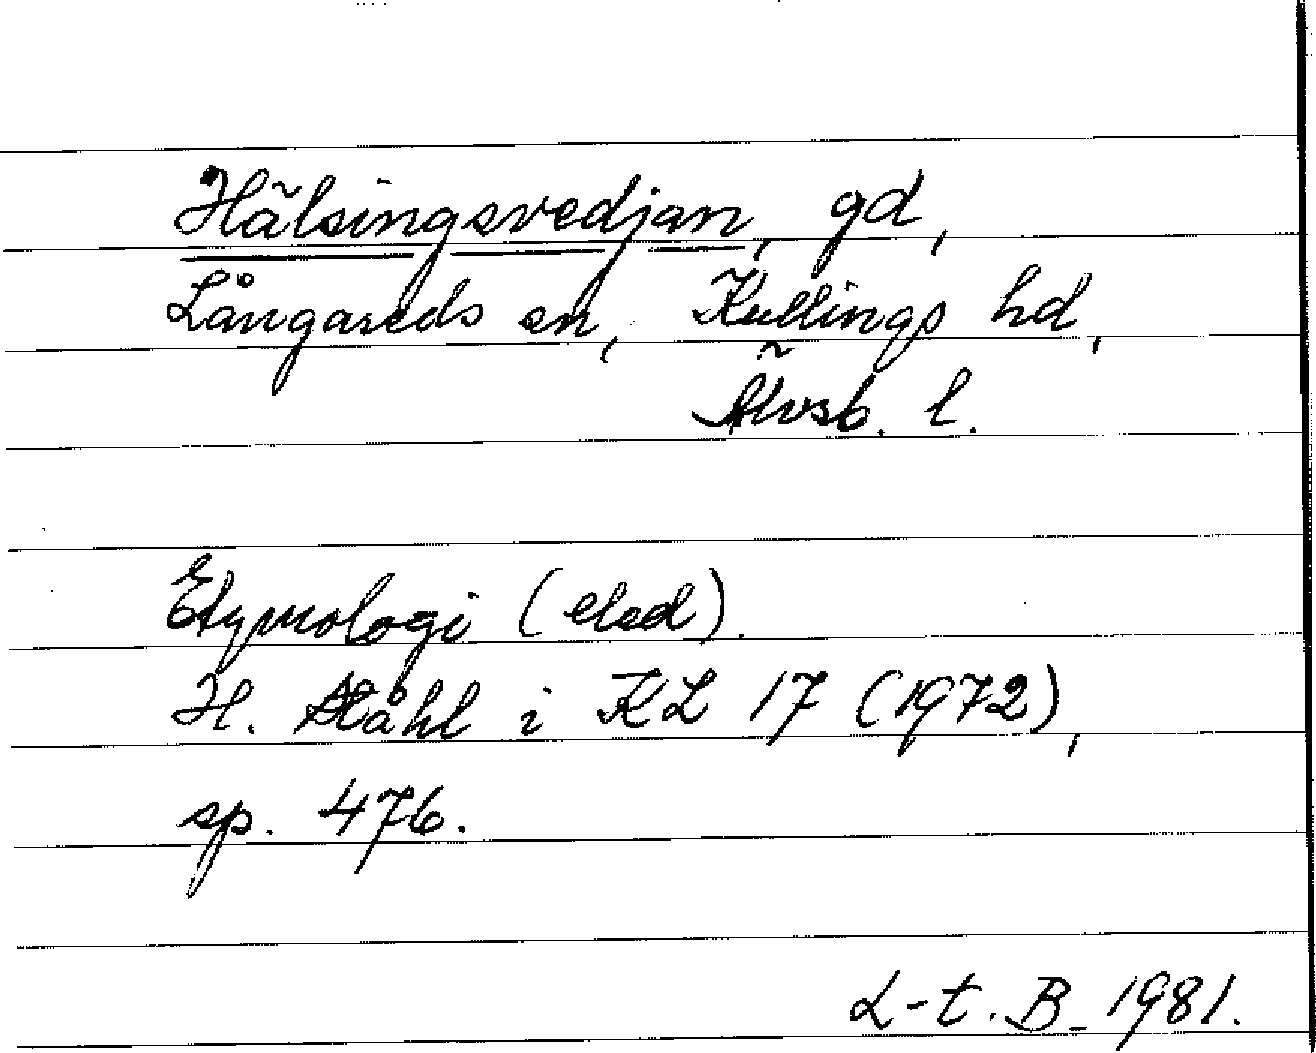 Hälsingsvedjan, gd,
Långareds sn, Kullings hd,
Älvsb. l.
Etymologi (eled).
H. Ståhl i KL 17 (1972),
sp. 476.
L-t. B. 1981.